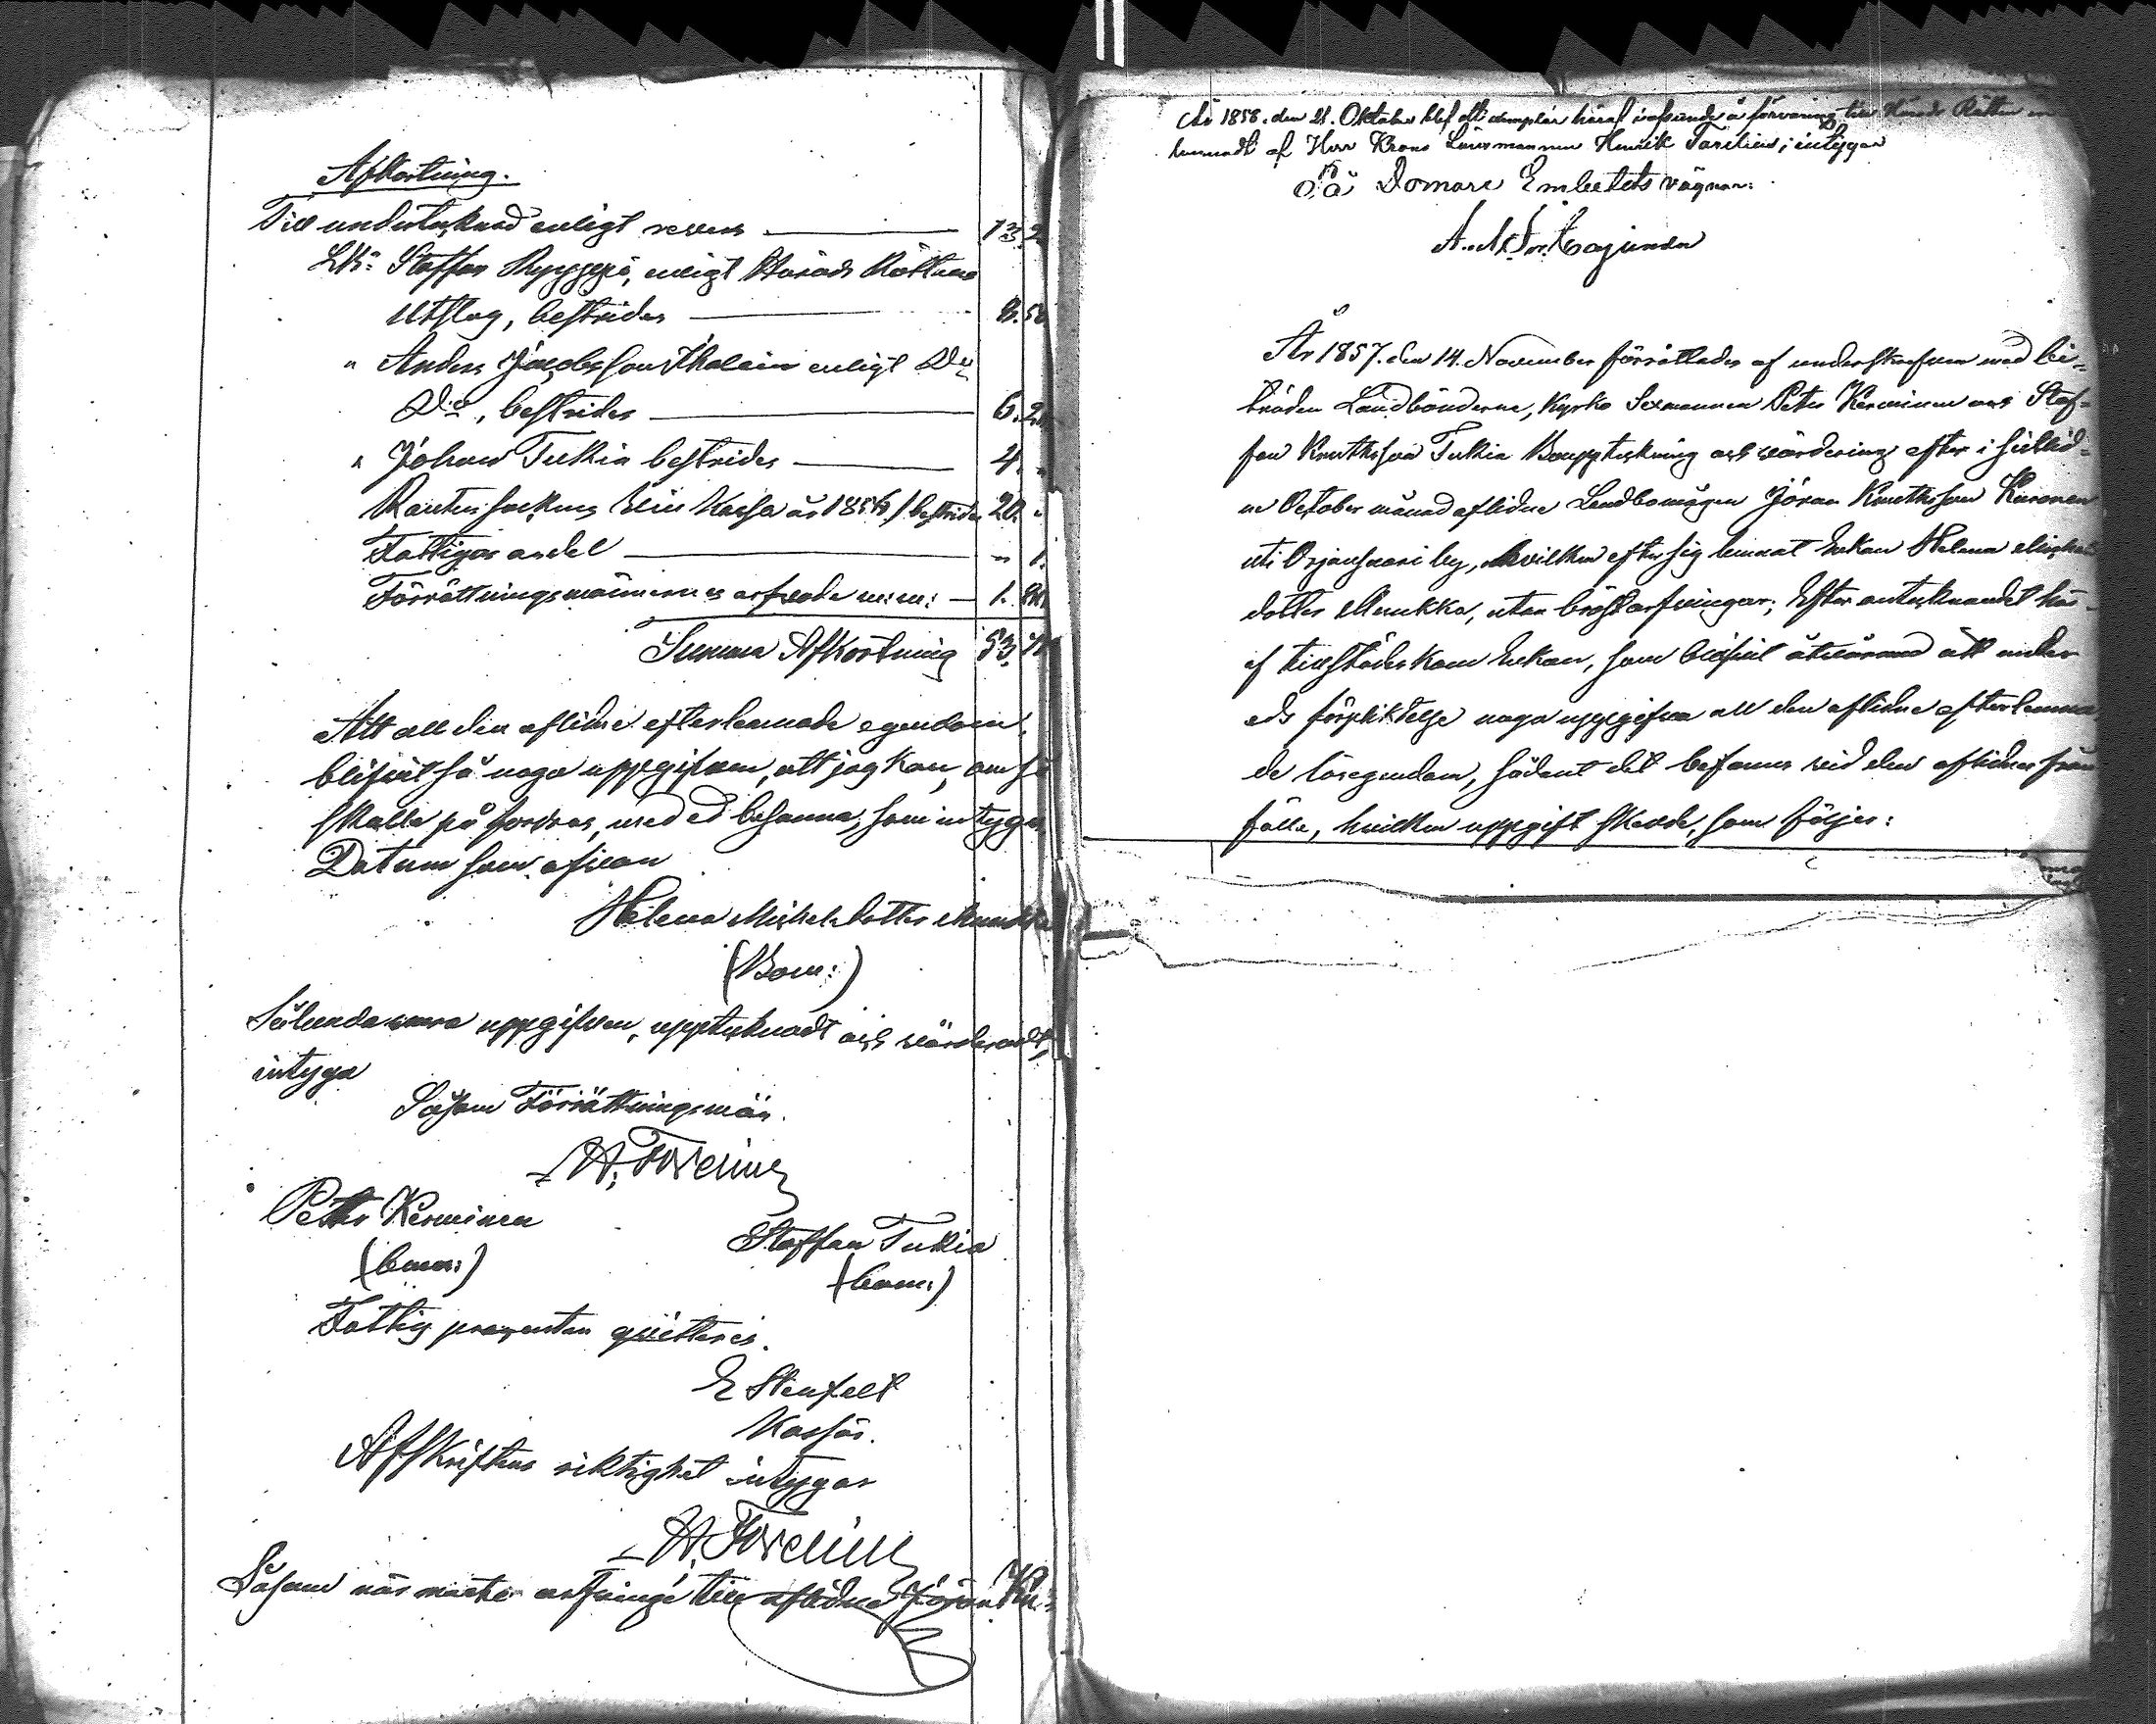 Afkortning.
Till undertecknad enligt revers 13. 2
Lb: Staffan enligt Härads Rättens
Utslag, bestrides 8. 50
" Anders Jacobsson Ihalain enligt D:o
D:o, bestrides 6. 2
" Johan Tukia bestrides 4. "
Rautus Sockens Kassa år 1856 / bestrides 20. "
Fattigas andel " 1.
Förrättningsmännernes arfvode m:m: 1.
Summa Afkortning 53.
Att all den aflidne efterlemnade egendom
blifvit så noga uppgifven, att jag kan, om så
skulle på fordras, med ed besanna, som intygas
Datum som ofvan
Helena Michelsdotter Mu
(Bom:)
Sålunda vara uppgifven, upptecknadt och värderadt,
intyga
Såsom Förrättningsmän.
H. Forelius
Petter Kerminen
Staffan Tukia
(bom:)
(bom:)
Fattig procenten qvitteres.
E Stenfelt
Kassör.
Afskriftens riktighet intygar
H. Forelius
Såsom närmaste arfvinge till aflidne Jöran Ku-
År 1858. den 21. Oktober blef ett exemplar häraf i förvaring till Härads Rätten in
lemnadt af Herr Krono Länsmannen Henrik intygar
På Domare Embetets vägnar:
År 1857. den 14. November förrättades af underskrefven med bi-
träden Landbönderne, Kyrko Sexmannen Petter Kerminen och Staf-
fan Knutsson Tukia Bouppteckning och värdering efter i sistlid-
ne October månad aflidne Landbomågen Jöran Knutsson Kuronen
uti Orjansaari by, hvilken efter sig lemnat Enkan Helena Michels
dotter Munkka, utan bröstarfvingar; Efter antecknandet här-
af tillstädeskom Enkan, som blifvit åtvarnad att under
eds förpliktelse noga uppgifva all den aflidne efterlemna
de lösegendom, sådant det befanns vid den aflidnes från
fälle, hvilken uppgift skedde, som följer: